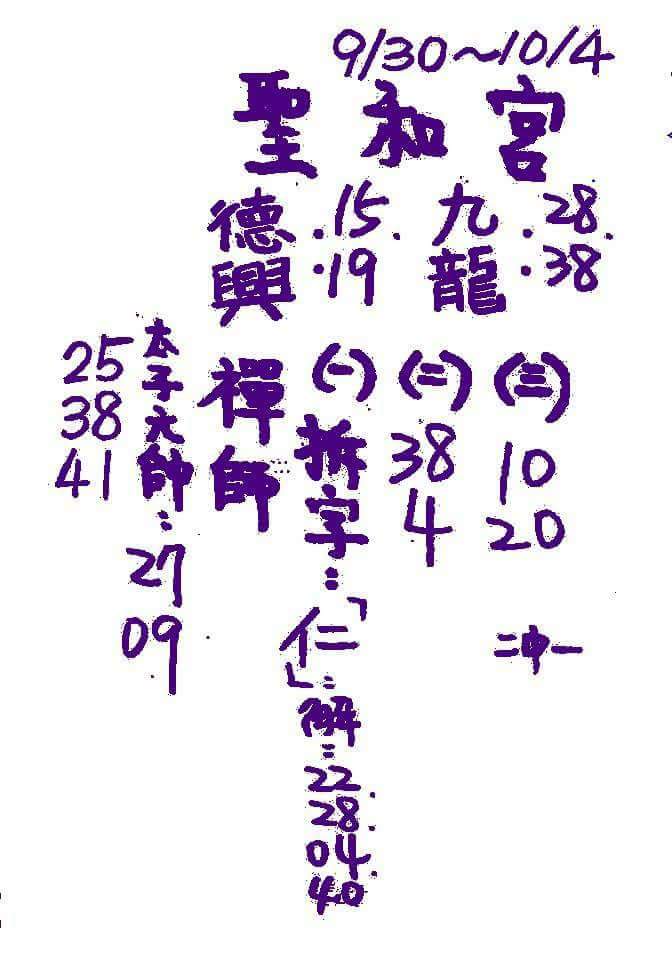 9/30~10/4
聖和宮
九龍 .28. .38
德興 .15. .19
禪師
(一) 拆字:「仁」:解:22. 28. 04. 40
(二) 38 4
(三) 10 20
二中一
太子元帥: 27 09
25 38 41